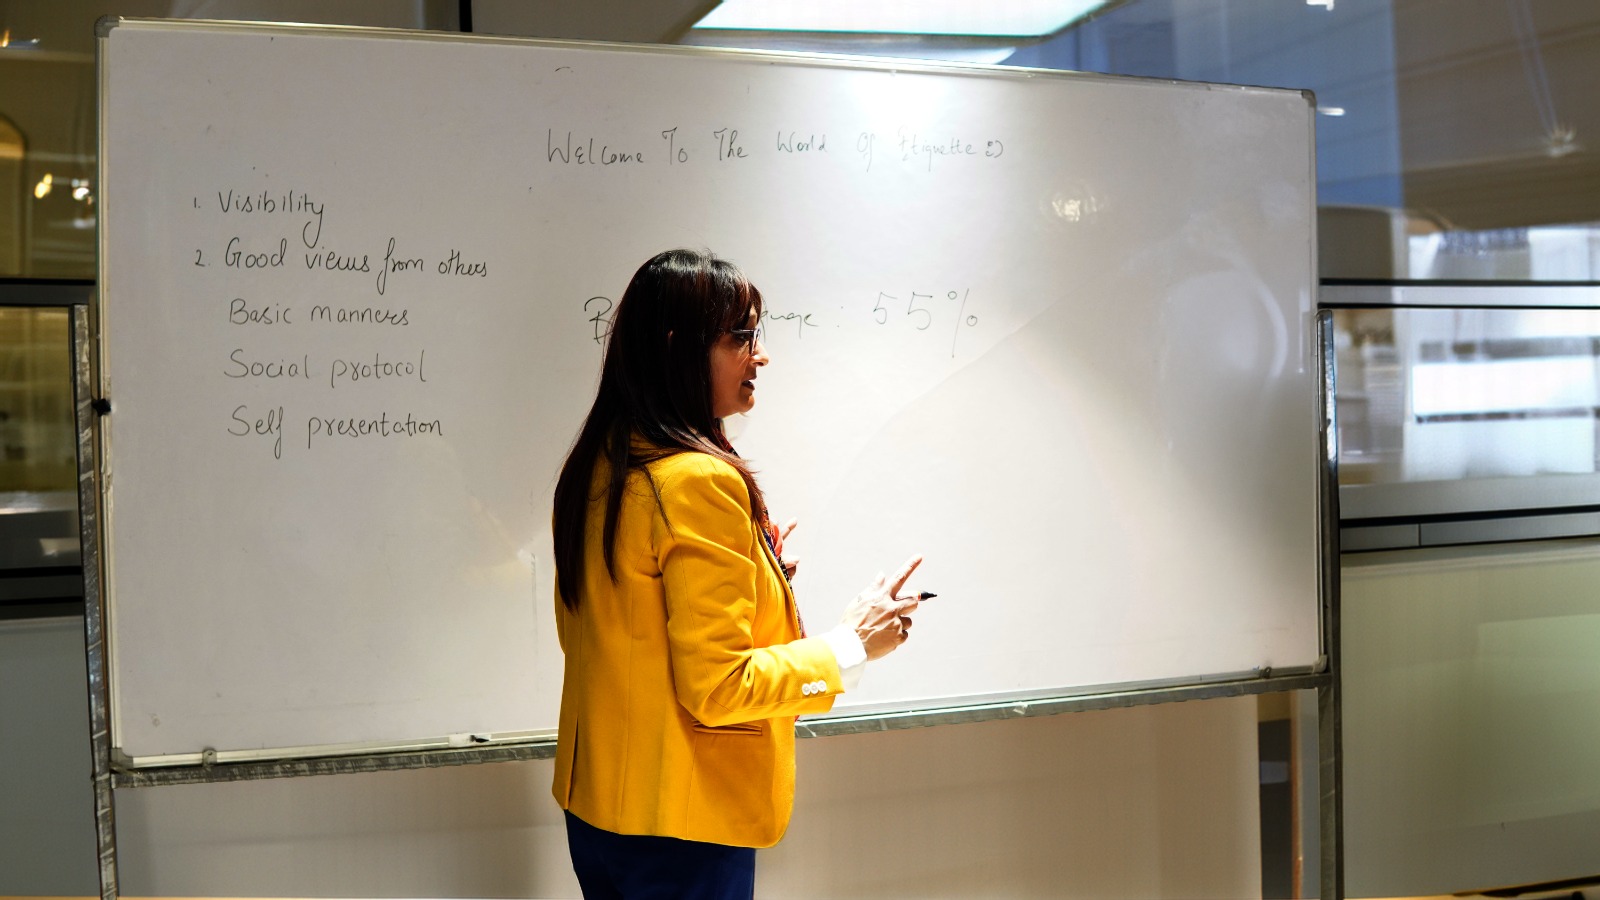 Welcome To The World Of Etiquette :)
1. Visibility
2. Good views from others
Basic manners
Social protocol
Self presentation
: 55%